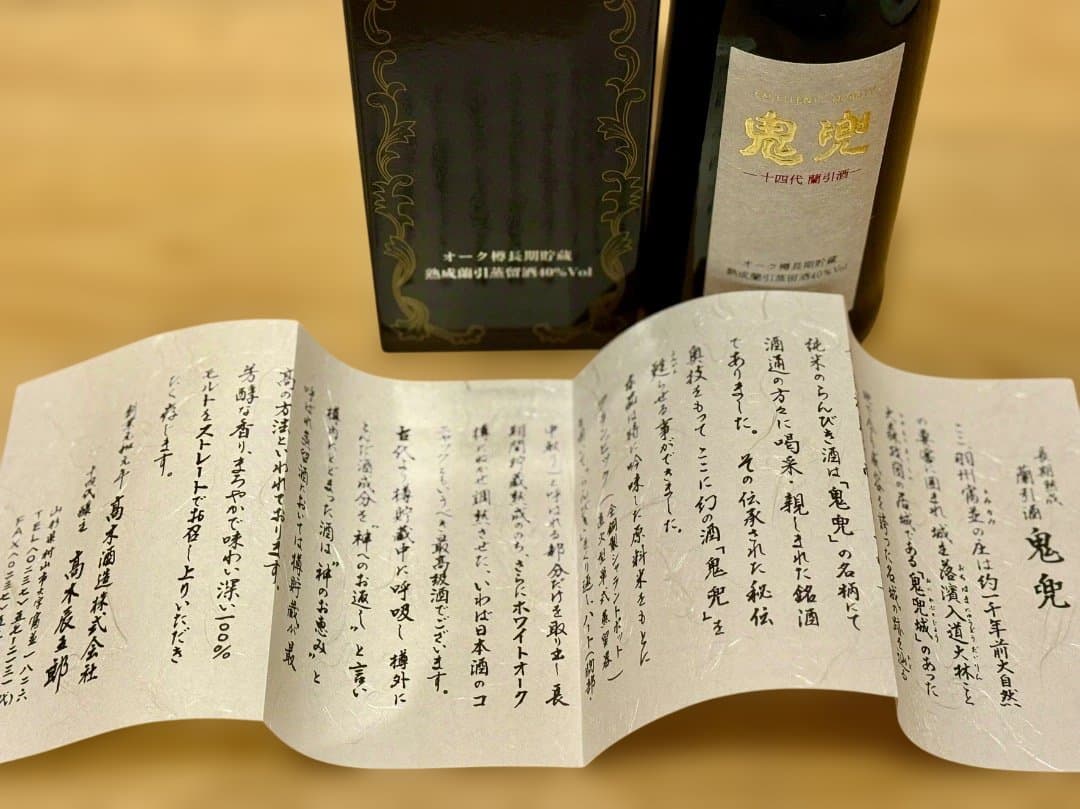 オーク樽長期貯蔵
熟成蘭引蒸留酒40%Vol
鬼兜
十四代 蘭引酒
オーク樽長期貯蔵
熟成蘭引蒸留酒40%Vol
長期熟成
蘭引酒
鬼兜
ここ羽州富並の庄は約一千年前大自然
の要塞に囲まれ、城主落濱入道大林こと
居城である「鬼兜城」のあった
純米のらんびき酒は「鬼兜」の名柄にて
酒通の方々に喝采・親しまれた銘酒
でありました。その伝承された秘伝
奥技をもってここに幻の酒「鬼兜」を
甦らせる事ができました。
本品は特に吟味した原料米をもとに
アランビック(金銅製シャラントポット
直火型単式蒸留器)
中取り」と呼ばれる部分だけを取り出し長
期間貯蔵熟成ののち、さらにホワイトオーク
樽にねかせ調熟させた、いわば日本酒のコ
ニャックともいうべき最高級酒でございます。
古代より樽貯蔵中に呼吸し樽外に
とんだ酒成分を"神へのお返し"と言い
樽内にとどまった酒は"神のお恵み"と
呼ばれ蒸留酒においては樽貯蔵が最
高の方法といわれております。
芳醇な香り、まろやかで味わい深い一〇〇%
モルトをストレートでお召し上りいただき
たく存します。
創業元和元年 高木酒造株式会社
十四代蔵主 高木辰五郎
山形県村山市大字富並一八二六
TEL(〇二三七)五七-二一三一(代)